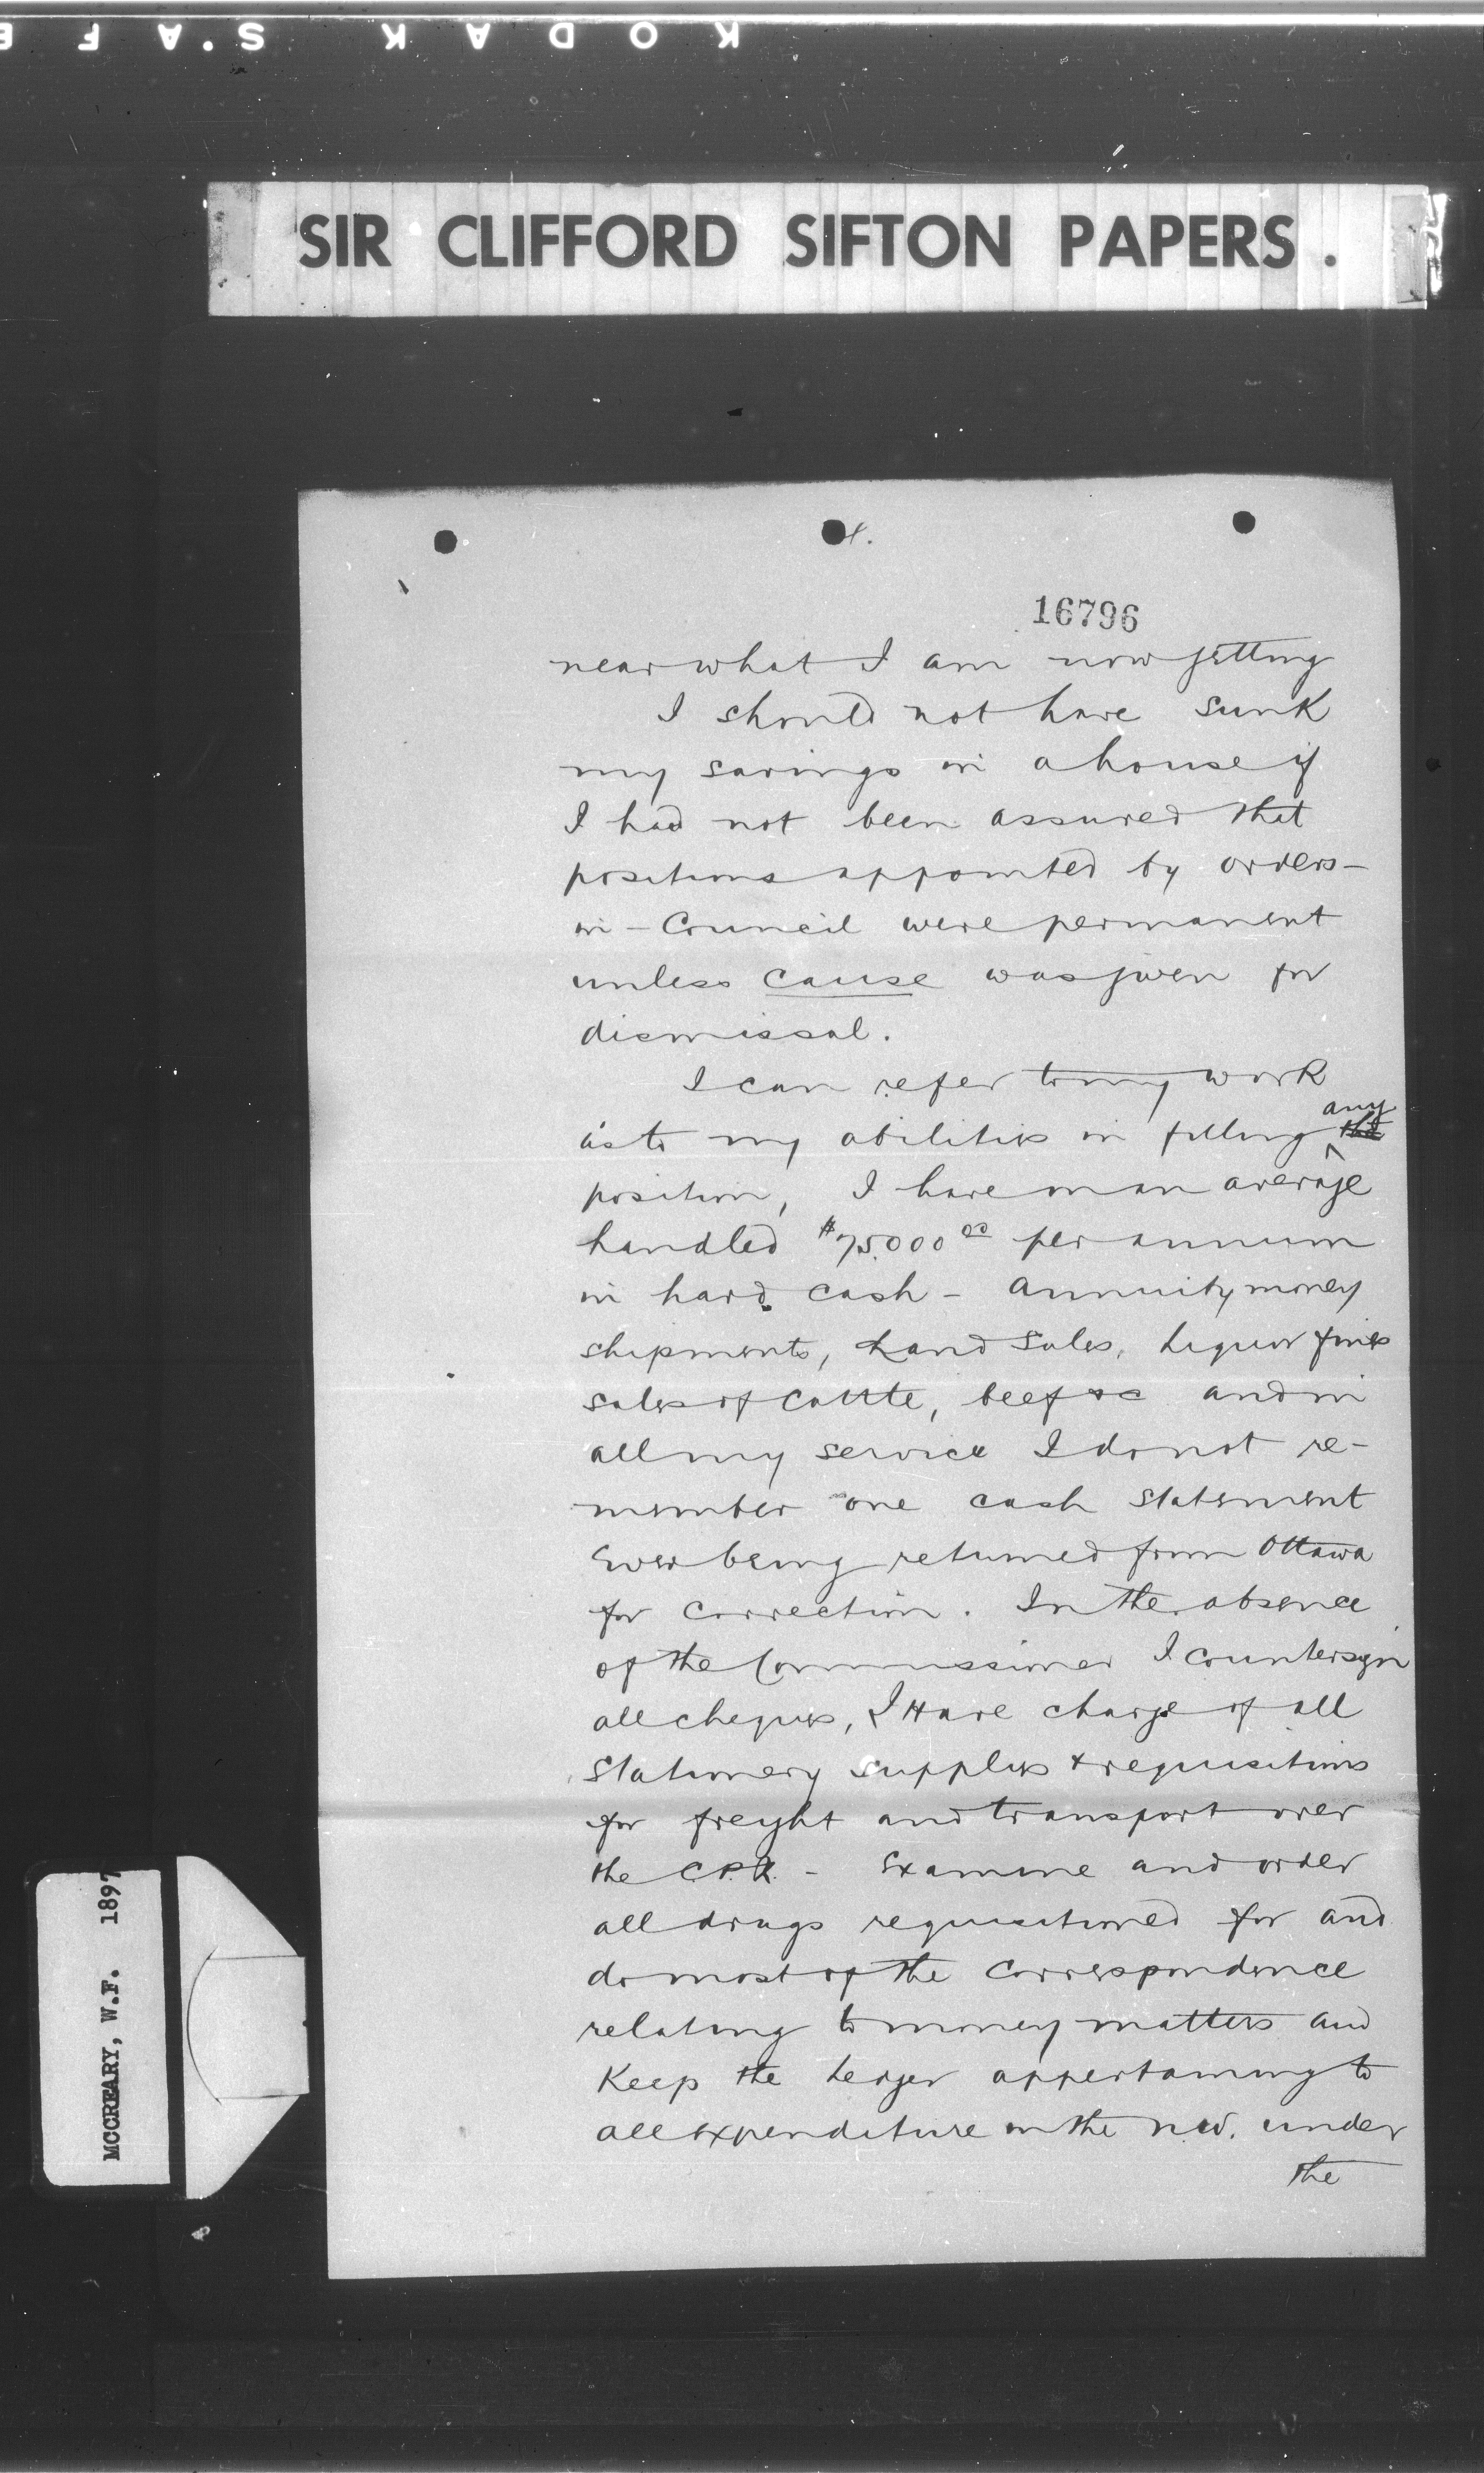 KODAK S.A.F E
SIR CLIFFORD SIFTON PAPERS.
4.
16796
near what I am now getting
I should not have sunk
my savings in a house if
I had not been assured that
positions appointed by orders-
in-Council were permanent
unless cause was given for
dismissal.
I can refer to my work
any
as to my abilities in filling the
position, I have on an average
handled $75.000 00 per annum
in hard cash - annuity money
shipments, Land Sales, Liquor fines
sales of Cattle, beef &c and in
all my service I do not re-
member one cash statement
ever being returned from Ottawa
for correction. In the absence
of the Commissioner I countersign
all cheques, I Have charge of all
Stationery supplies & requisitions
for freight and transport over
the C.P.R. - Examine and order
all drugs requisitioned for and
do most of the correspondence
relating to money matters and
Keep the Ledger appertaining to
all expenditure in the N.W. under
the
MCCREARY, W.F. 1897